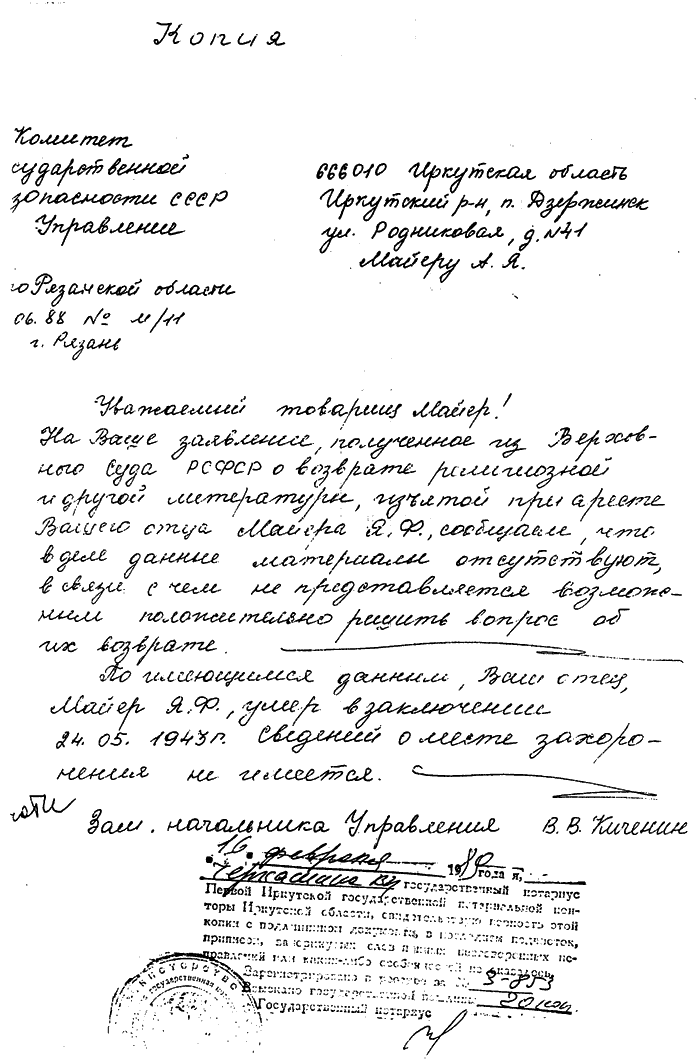 Копия
Комитет
сударственной
зопасности СССР
Управление
о Рязанской области
06.88 № м/11
г. Рязань
666010 Иркутская область
Иркутский р-н, п. Дзержинск
ул. Родниковая, д. N41
Майеру А. Я.
Уважаемый товарищ Майер!
На Ваше заявление, полученное из Верхов-
ного Суда РСФСР о возврате религиозной
и другой литературы, изъятой при аресте
Вашего отца Майера Я.Ф., сообщаем, что
в деле данные материалы отсутствуют,
в связи с чем не представляется возмож-
ным положительно решить вопрос об
их возврате.
По имеющимся данным, Ваш отец,
Майер Я.Ф., умер в заключении
24.05.1943г. Сведений о месте захоро-
нения не имеется.
Зам. начальника Управления В. В. Киченин
16 февраля 19 года я,
государственный нотариус
Первой Иркутской государственной нотариальной кон-
торы Иркутской области, свидетельствую верность этой
копии с подлинником документа, в последнем подчисток,
приписок, зачеркнутых слов и иных неоговоренных ис-
правлений или каких-либо особенностей не оказалось.
Зарегистрировано в реестре за № 3-853
Взыскано государственной пошлины 20 коп.
Государственный нотариус